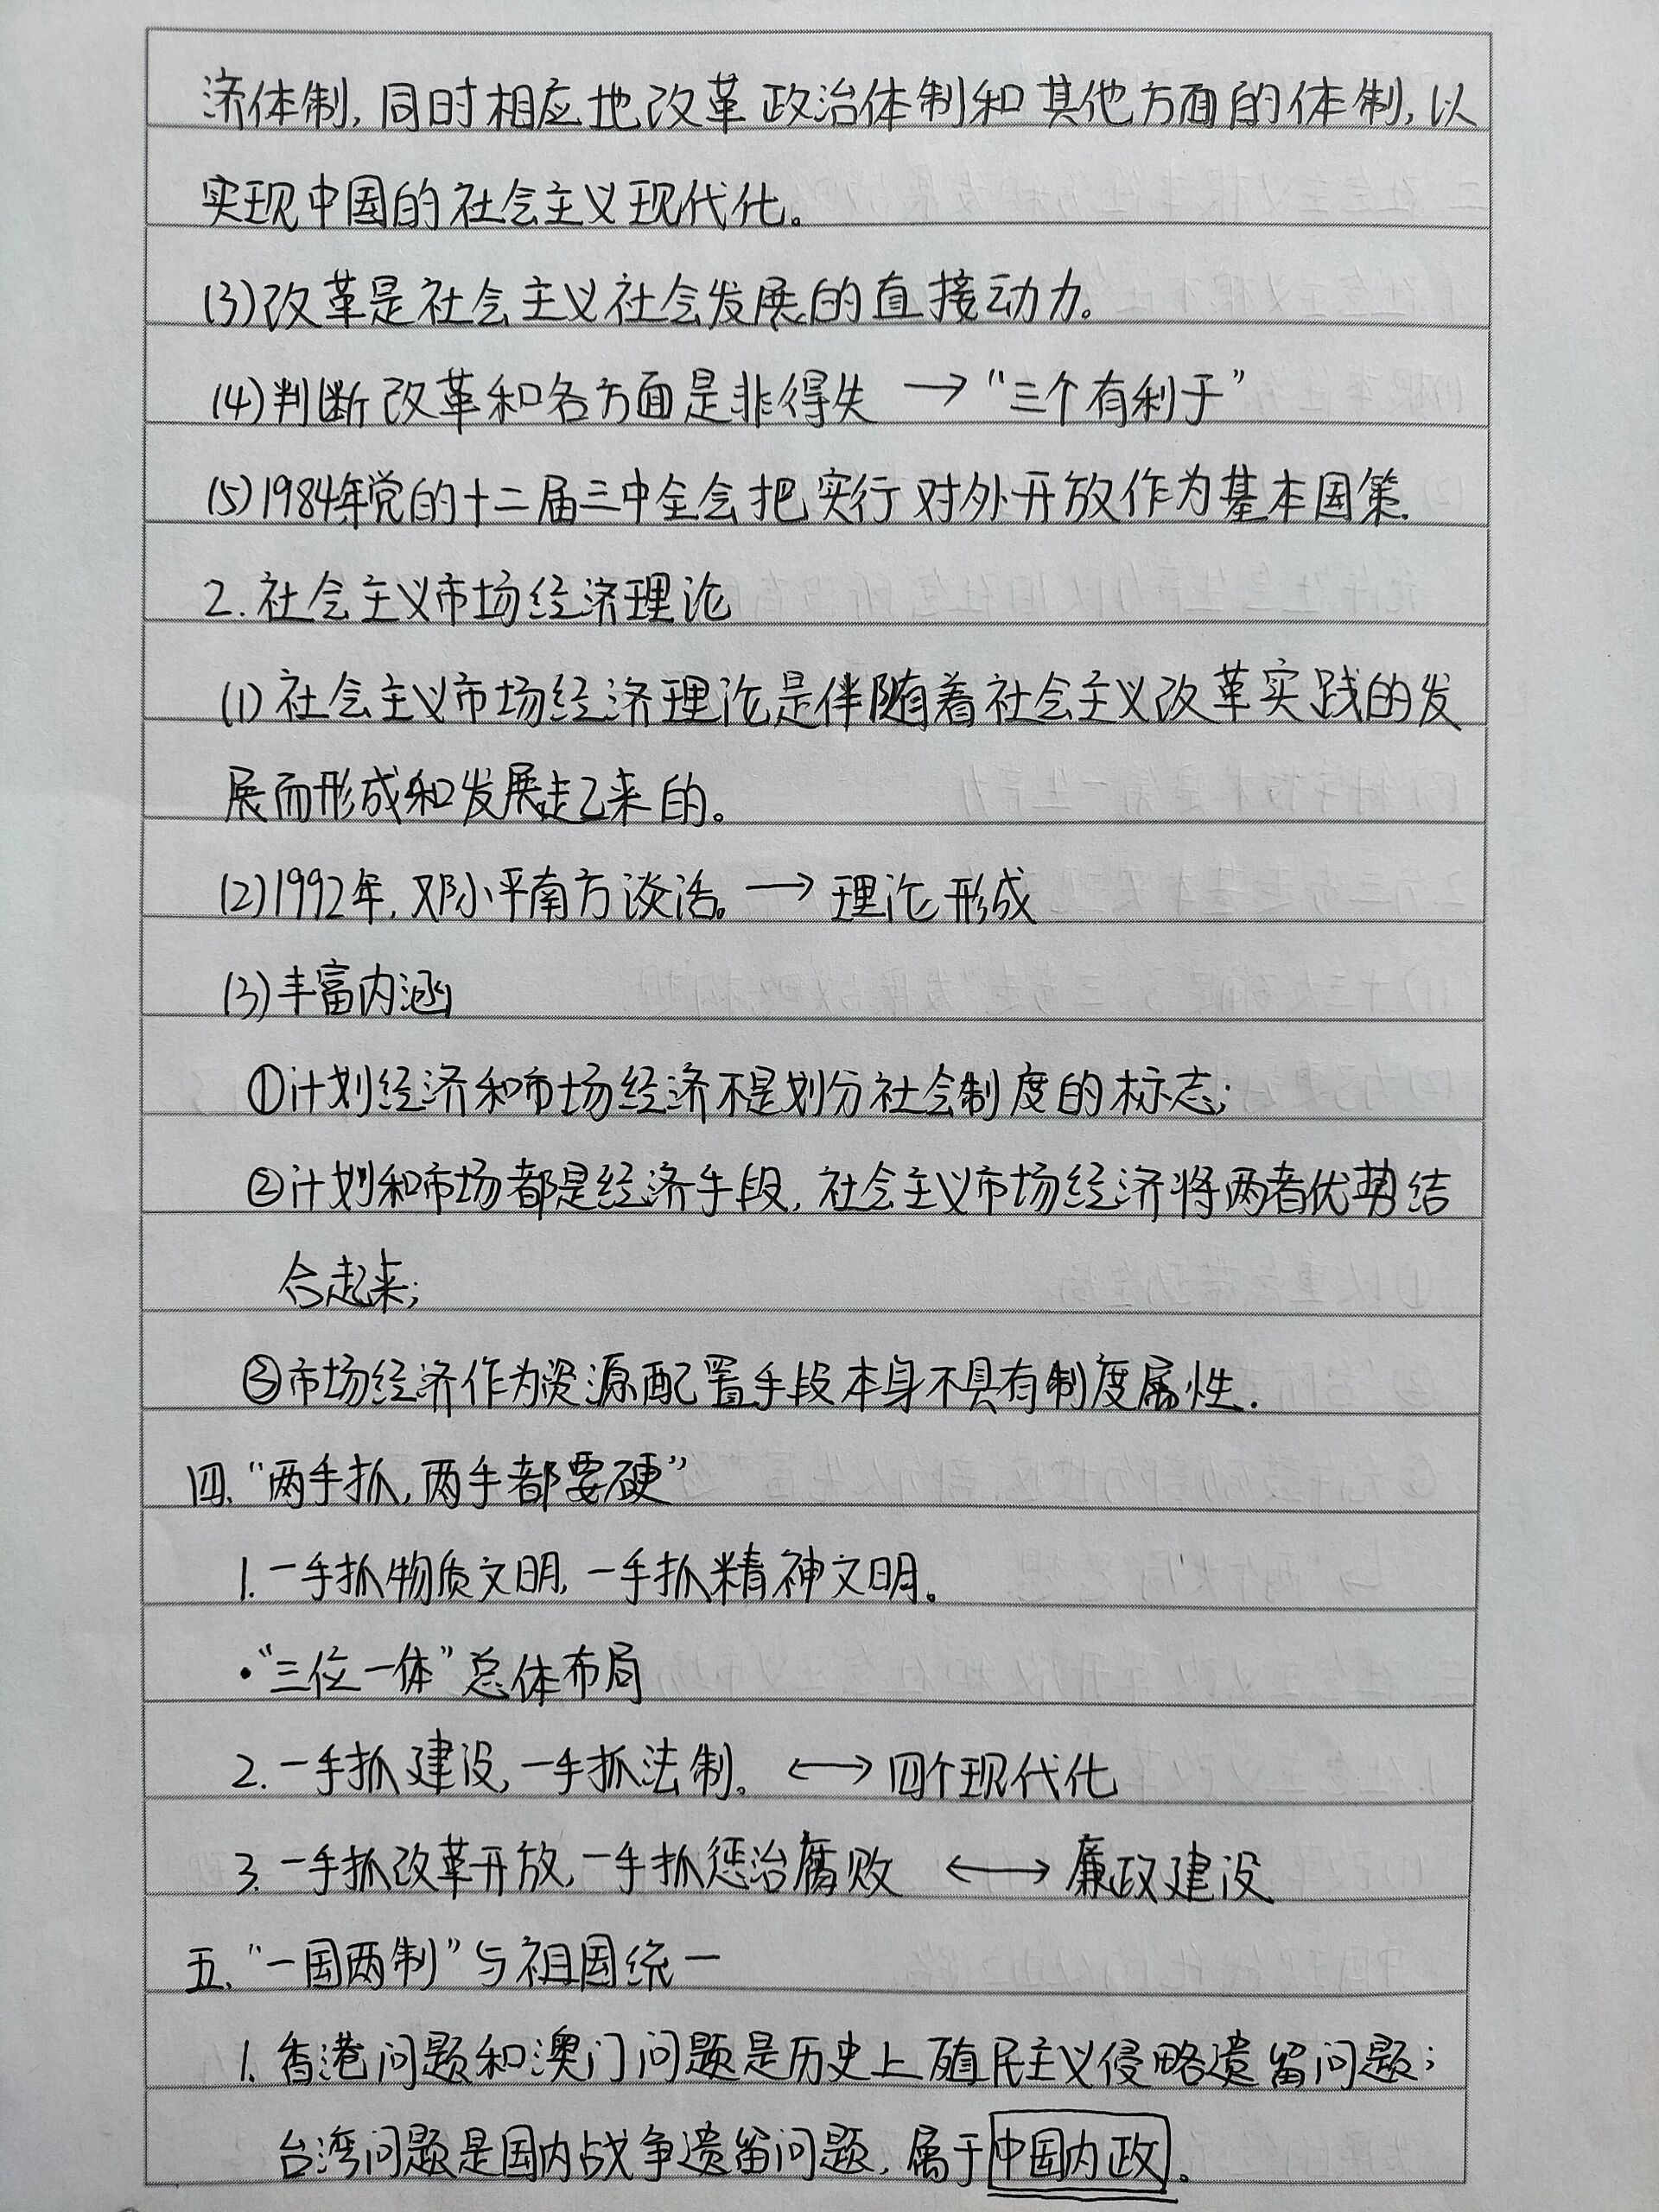 济体制,同时相应地改革政治体制和其他方面的体制,以
实现中国的社会主义现代化。
(3)改革是社会主义社会发展的直接动力。
(4)判断改革和各方面是非得失 → “三个有利于”
(5)1984年党的十二届三中全会把实行对外开放作为基本国策.
2.社会主义市场经济理论
(1)社会主义市场经济理论是伴随着社会主义改革实践的发
展而形成和发展起来的。
(2)1992年,邓小平南方谈话。→ 理论形成
(3)丰富内涵
①计划经济和市场经济不是划分社会制度的标志;
②计划和市场都是经济手段,社会主义市场经济将两者优势结
合起来;
③市场经济作为资源配置手段本身不具有制度属性.
四.“两手抓,两手都要硬”
1.一手抓物质文明,一手抓精神文明。
·“三位一体”总体布局
2.一手抓建设,一手抓法制。←→ 四个现代化
3.一手抓改革开放,一手抓惩治腐败 ←→ 廉政建设
五.“一国两制”与祖国统一
1.香港问题和澳门问题是历史上殖民主义侵略遗留问题;
台湾问题是国内战争遗留问题,属于中国内政。